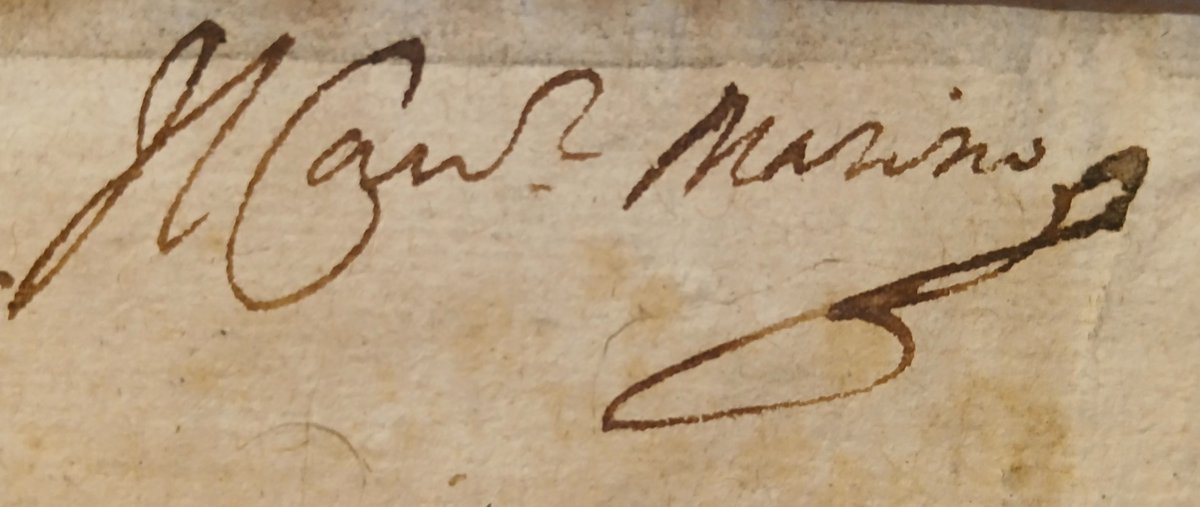 Il Cav.r Marino